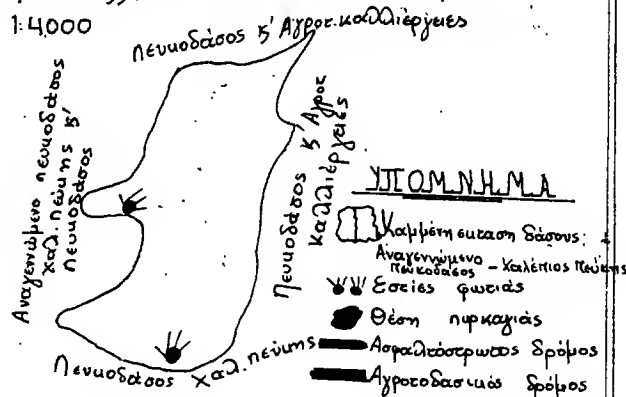 1:4000
Πευκοδάσος ϗ' Αγροτ. καλλιέργειες
Αναγεννώμενο πευκοδάσος
χαλ. πεύκης ϗ'
πευκοδάσος
Πευκοδάσος ϗ' Αγροτ
καλλιέργειες
Πευκοδάσος χαλ. πεύκης
ΥΠΟΜΝΗΜΑ
Καμμένη έκταση δάσους:
Αναγεννώμενο
πευκοδάσος - Χαλέπιος πεύκης
Εστίες φωτιάς
Θέση πυρκαγιάς
Ασφαλτόστρωτος δρόμος
Αγροτοδασικός δρόμος